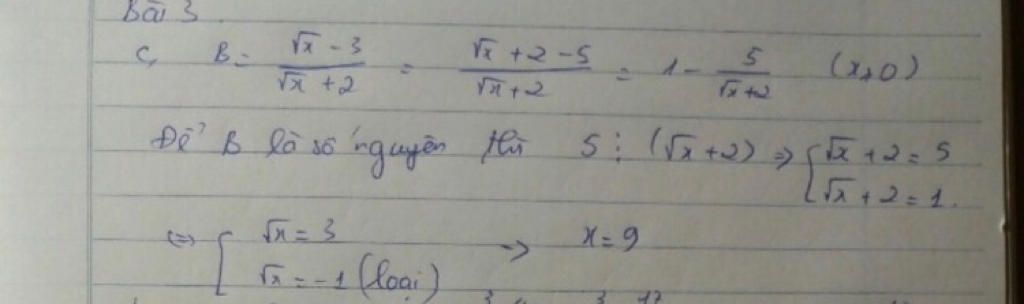 Bài 3
c, B = \frac{\sqrt{x} - 3}{\sqrt{x} + 2} = \frac{\sqrt{x} + 2 - 5}{\sqrt{x} + 2} = 1 - \frac{5}{\sqrt{x} + 2} (x≥0)
Để B là số nguyên thì 5 ⋮ (√x + 2) => [ √x + 2 = 5
√x + 2 = 1.
<=> [ √x = 3 -> x = 9
√x = -1 (loại)